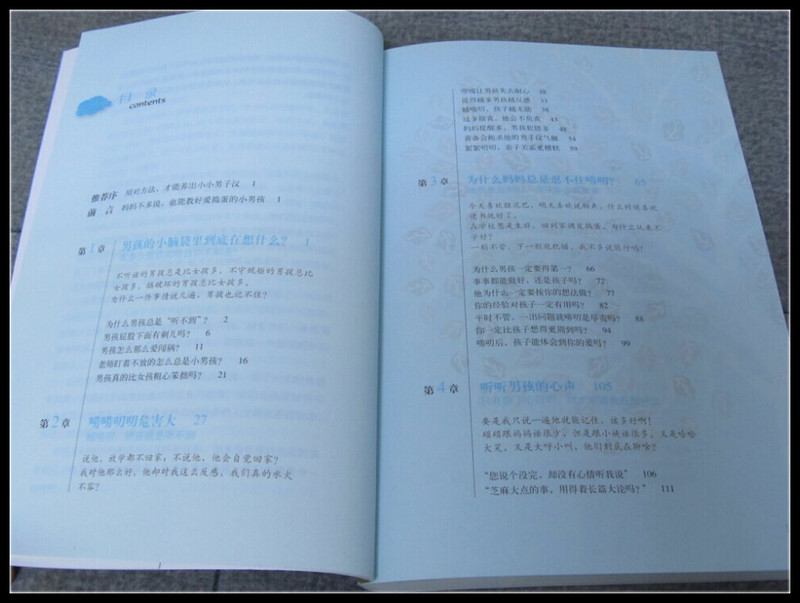 目 录
contents
推荐序 用对方法，才能养出小小男子汉 1
前 言 妈妈不多说，也能教好爱捣蛋的小男孩 1
第1章 男孩的小脑袋里到底在想什么？ 1
不听话的男孩总是比女孩多，不守规矩的男孩总比
女孩多，搞破坏的男孩总比女孩多。
为什么一件事情说几遍，男孩也记不住？
为什么男孩总是“听不到”？ 2
男孩屁股下面有刺儿吗？ 6
男孩怎么那么爱闯祸？ 11
老师盯着不放的怎么总是小男孩？ 16
男孩真的比女孩粗心笨拙吗？ 21
第2章 唠唠叨叨危害大 27
说他，放学都不回家；不说他，他会自觉回家？
我对他那么好，他却对我这么反感，我们真的水火
不容？
唠叨让男孩失去耐心 28
说得越多男孩越反感 31
越唠叨，孩子越无能
过多指责，他会不负责 43
妈妈提醒多，男孩依赖多 48
絮絮叨叨，亲子关系更糟糕 59
第3章 为什么妈妈总是忍不住唠叨？ 65
今天喜欢跟泥巴，明天喜欢玩铅声，什么时候喜欢
读书就好了。
在学校想是表好，回到家调皮捣蛋，为什么从来不
学好？
一刻不管，下一刻现犯错，我不多说能行吗？
为什么男孩一定要得第一？ 66
事事都能做好，还是孩子吗？ 72
他为什么一定要按你的想法做？ 77
你的经验对孩子一定有用吗？ 82
平时不管，一出问题就唠叨是尽责吗？ 88
你一定比孩子想得更周到吗？ 94
唠叨后，孩子能体会到你的爱吗？ 99
第4章 听听男孩的心声 105
要是我只说一遍他就能记住，该多好啊！
顽顽跟妈妈话很少，但是跟小姨话很多，又是哈哈
大笑，又是大呼小叫，他们到底在聊啥？
“您说个没完，却没有心情听我说” 106
“芝麻大点的事，用得着长篇大论吗？” 111